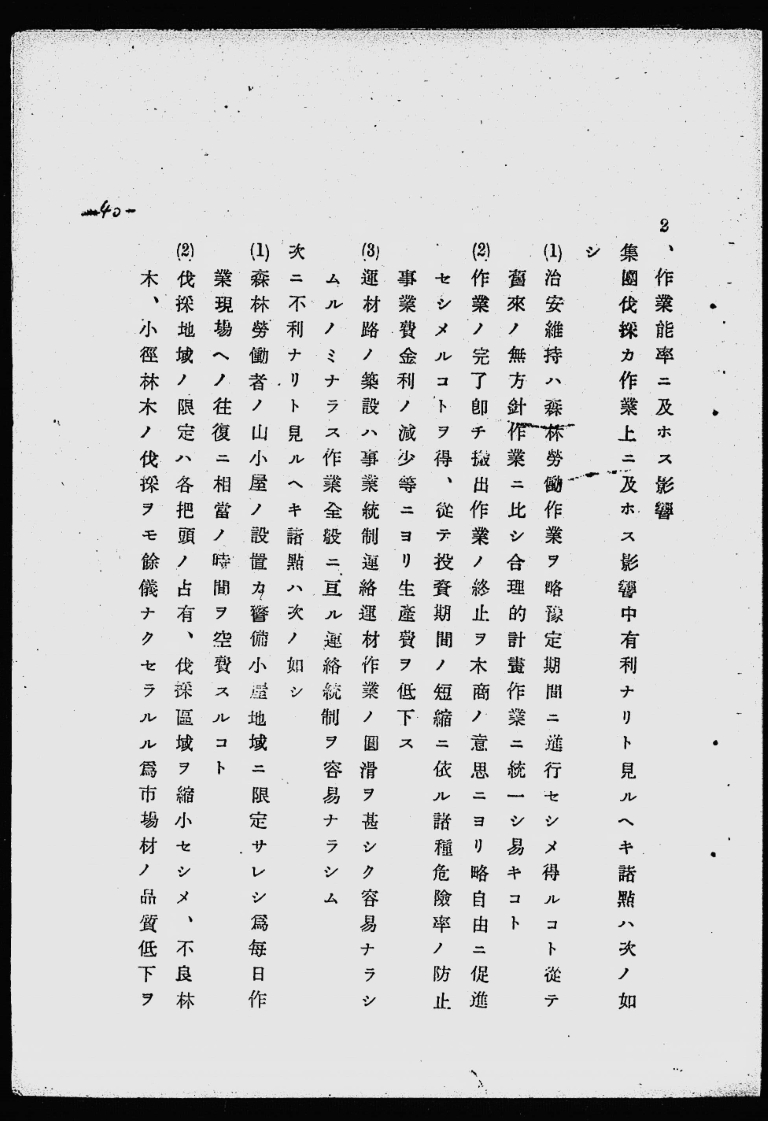 2、作業能率ニ及ホス影響
集團伐採カ作業上ニ及ホス影響中有利ナリト見ルヘキ諸點ハ次ノ如
シ
(1)治安維持ハ森林勞働作業ヲ略豫定期間ニ進行セシメ得ルコト從テ
舊來ノ無方針作業ニ比シ合理的計畫作業ニ統一シ易キコト
(2)作業ノ完了卽チ搬出作業ノ終止ヲ木商ノ意思ニヨリ略自由ニ促進
セシメルコトヲ得、從テ投資期間ノ短縮ニ依ル諸種危險率ノ防止
事業費金利ノ減少等ニヨリ生產費ヲ低下ス
(3)運材路ノ築設ハ事業統制運絡運材作業ノ圓滑ヲ甚シク容易ナラシ
ムルノミナラス作業全般ニ亙ル連絡統制ヲ容易ナラシム
次ニ不利ナリト見ルヘキ諸點ハ次ノ如シ
(1)森林勞働者ノ山小屋ノ設置カ警備小屋地域ニ限定サレシ爲每日作
業現場ヘノ往復ニ相當ノ時間ヲ空費スルコト
(2)伐採地域ノ限定ハ各把頭ノ占有、伐採區域ヲ縮小セシメ、不良林
木、小徑林木ノ伐採ヲモ餘儀ナクセラルル爲市場材ノ品質低下ヲ
-40-